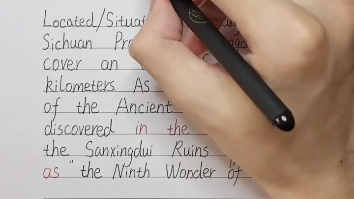 Located/Situat
Sichuan Pro
cover an
kilometers As
of the Ancient
discovered in the
the Sanxingdui Ruins
as "the Ninth Wonder of